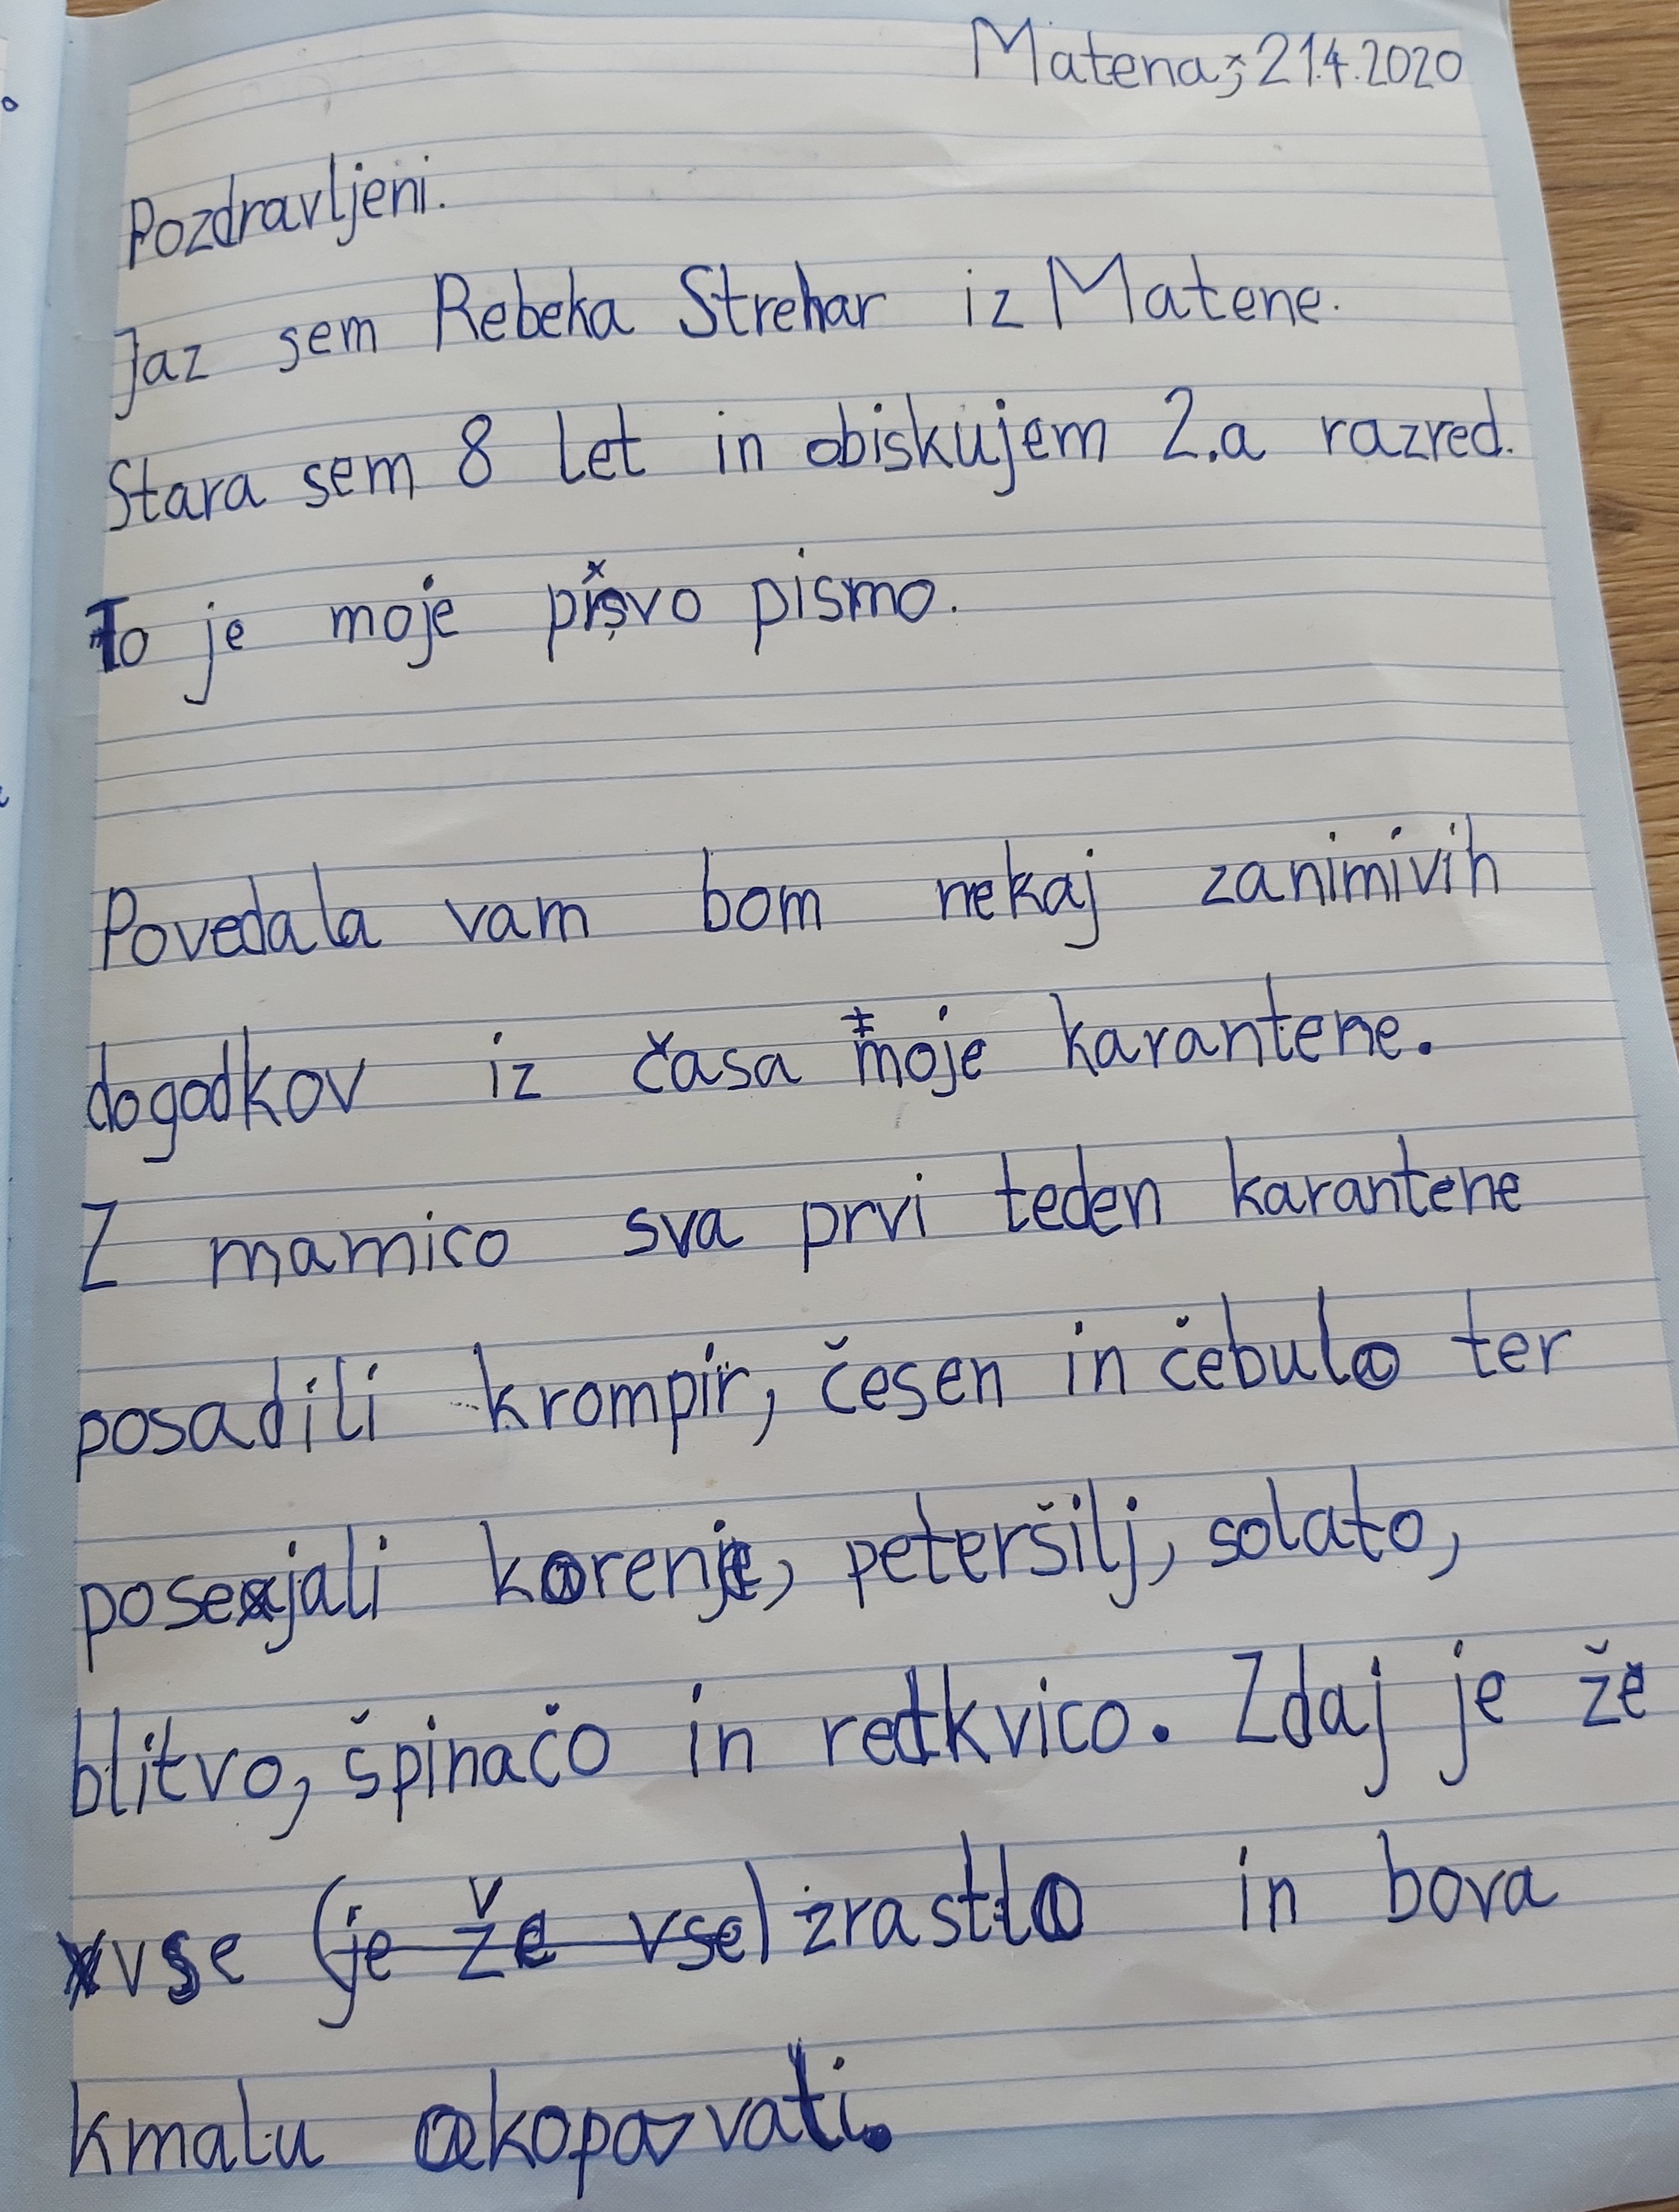 Matena, 21.4.2020
Pozdravljeni.
Jaz sem Rebeka Strehar iz Matene.
Stara sem 8 let in obiskujem 2.a razred.
To je moje pisvo pismo.
Povedala vam bom nekaj zanimivih
dogodkov iz časa moje karantene.
Z mamico sva prvi teden karantene
posadili krompir, česen in čebulo ter
posejali korenje, peteršilj, solato,
blitvo, špinačo in redkvico. Zdaj je že
vse (je že vse) zrastlo in bova
kmalu okopavati.